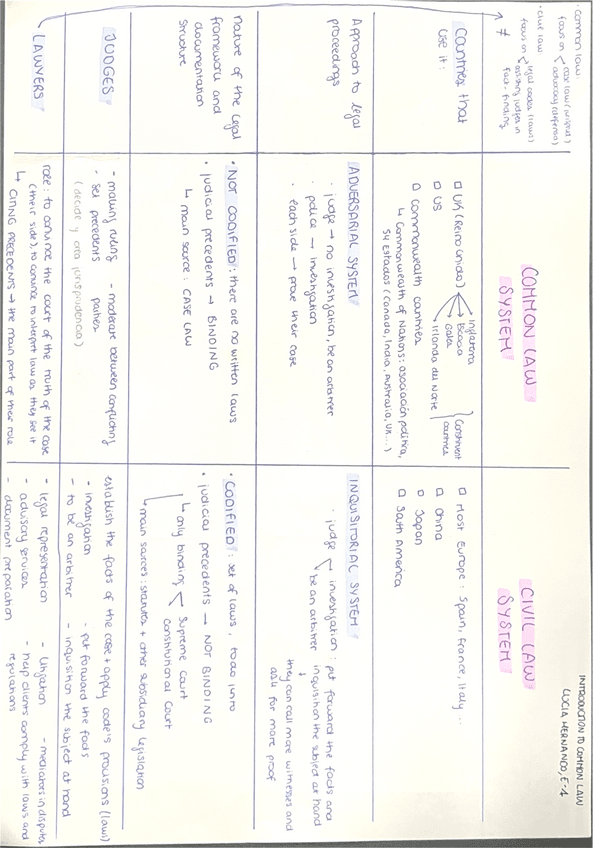 INTRODUCTION TO COMMON LAW
LUCIA HERNANDO, E-1
· Common law:
focus on
case law (jurisprud)
advocacy (defensa)
· Civil law
focus on
legal codes (laws)
assisting judges in
fact-finding
≠
COMMON LAW
SYSTEM
CIVIL LAW
SYSTEM
Countries that
use it:
UK (Reino Unido)
Inglaterra
Escocia
Gales
Irlanda del Norte
Constituent
countries
US
Commonwealth countries
↳ Commonwealth of Nations: asociación política,
54 Estados (Canada, India, Australia, UK...)
Most Europe: Spain, France, Italy...
China
Japan
South America
Approach to legal
proceedings
ADVERSARIAL SYSTEM
· judge → no investigation, be an arbiter
· police → investigation
· each side → prove their case
INQUISITORIAL SYSTEM
· judge
investigation: put forward the facts and
be an arbitrer inquisition the subject at hand
they can call more witnesses and
ask for more proof
Nature of the legal
framework and
documentation
structure
· NOT CODIFIED: there are no written laws
· judicial precedents → BINDING
↳ main source: CASE LAW
· CODIFIED: set of laws, todo junto
· judicial precedents → NOT BINDING
↳ only binding
Supreme Court
Constitutional Court
↳ main sources: statutes + other subsidiary legislation
JUDGES
- making ruling
- moderate between conflicting
parties
- set precedents
(decide y crea jurisprudencia)
establish the facts of the case + apply code's provisions (laws)
- investigation
- put forward the facts
- to be an arbitrer
- inquisition the subject at hand
LAWYERS
role: to convince the court of the truth of the case
(their side), to convince to interpret law as they see it
↳ CITING PRECEDENTS → the main part of their role
- legal representation
- litigation
- mediators in disputes
- advisory services
- help clients comply with laws and
regulations
- document preparation